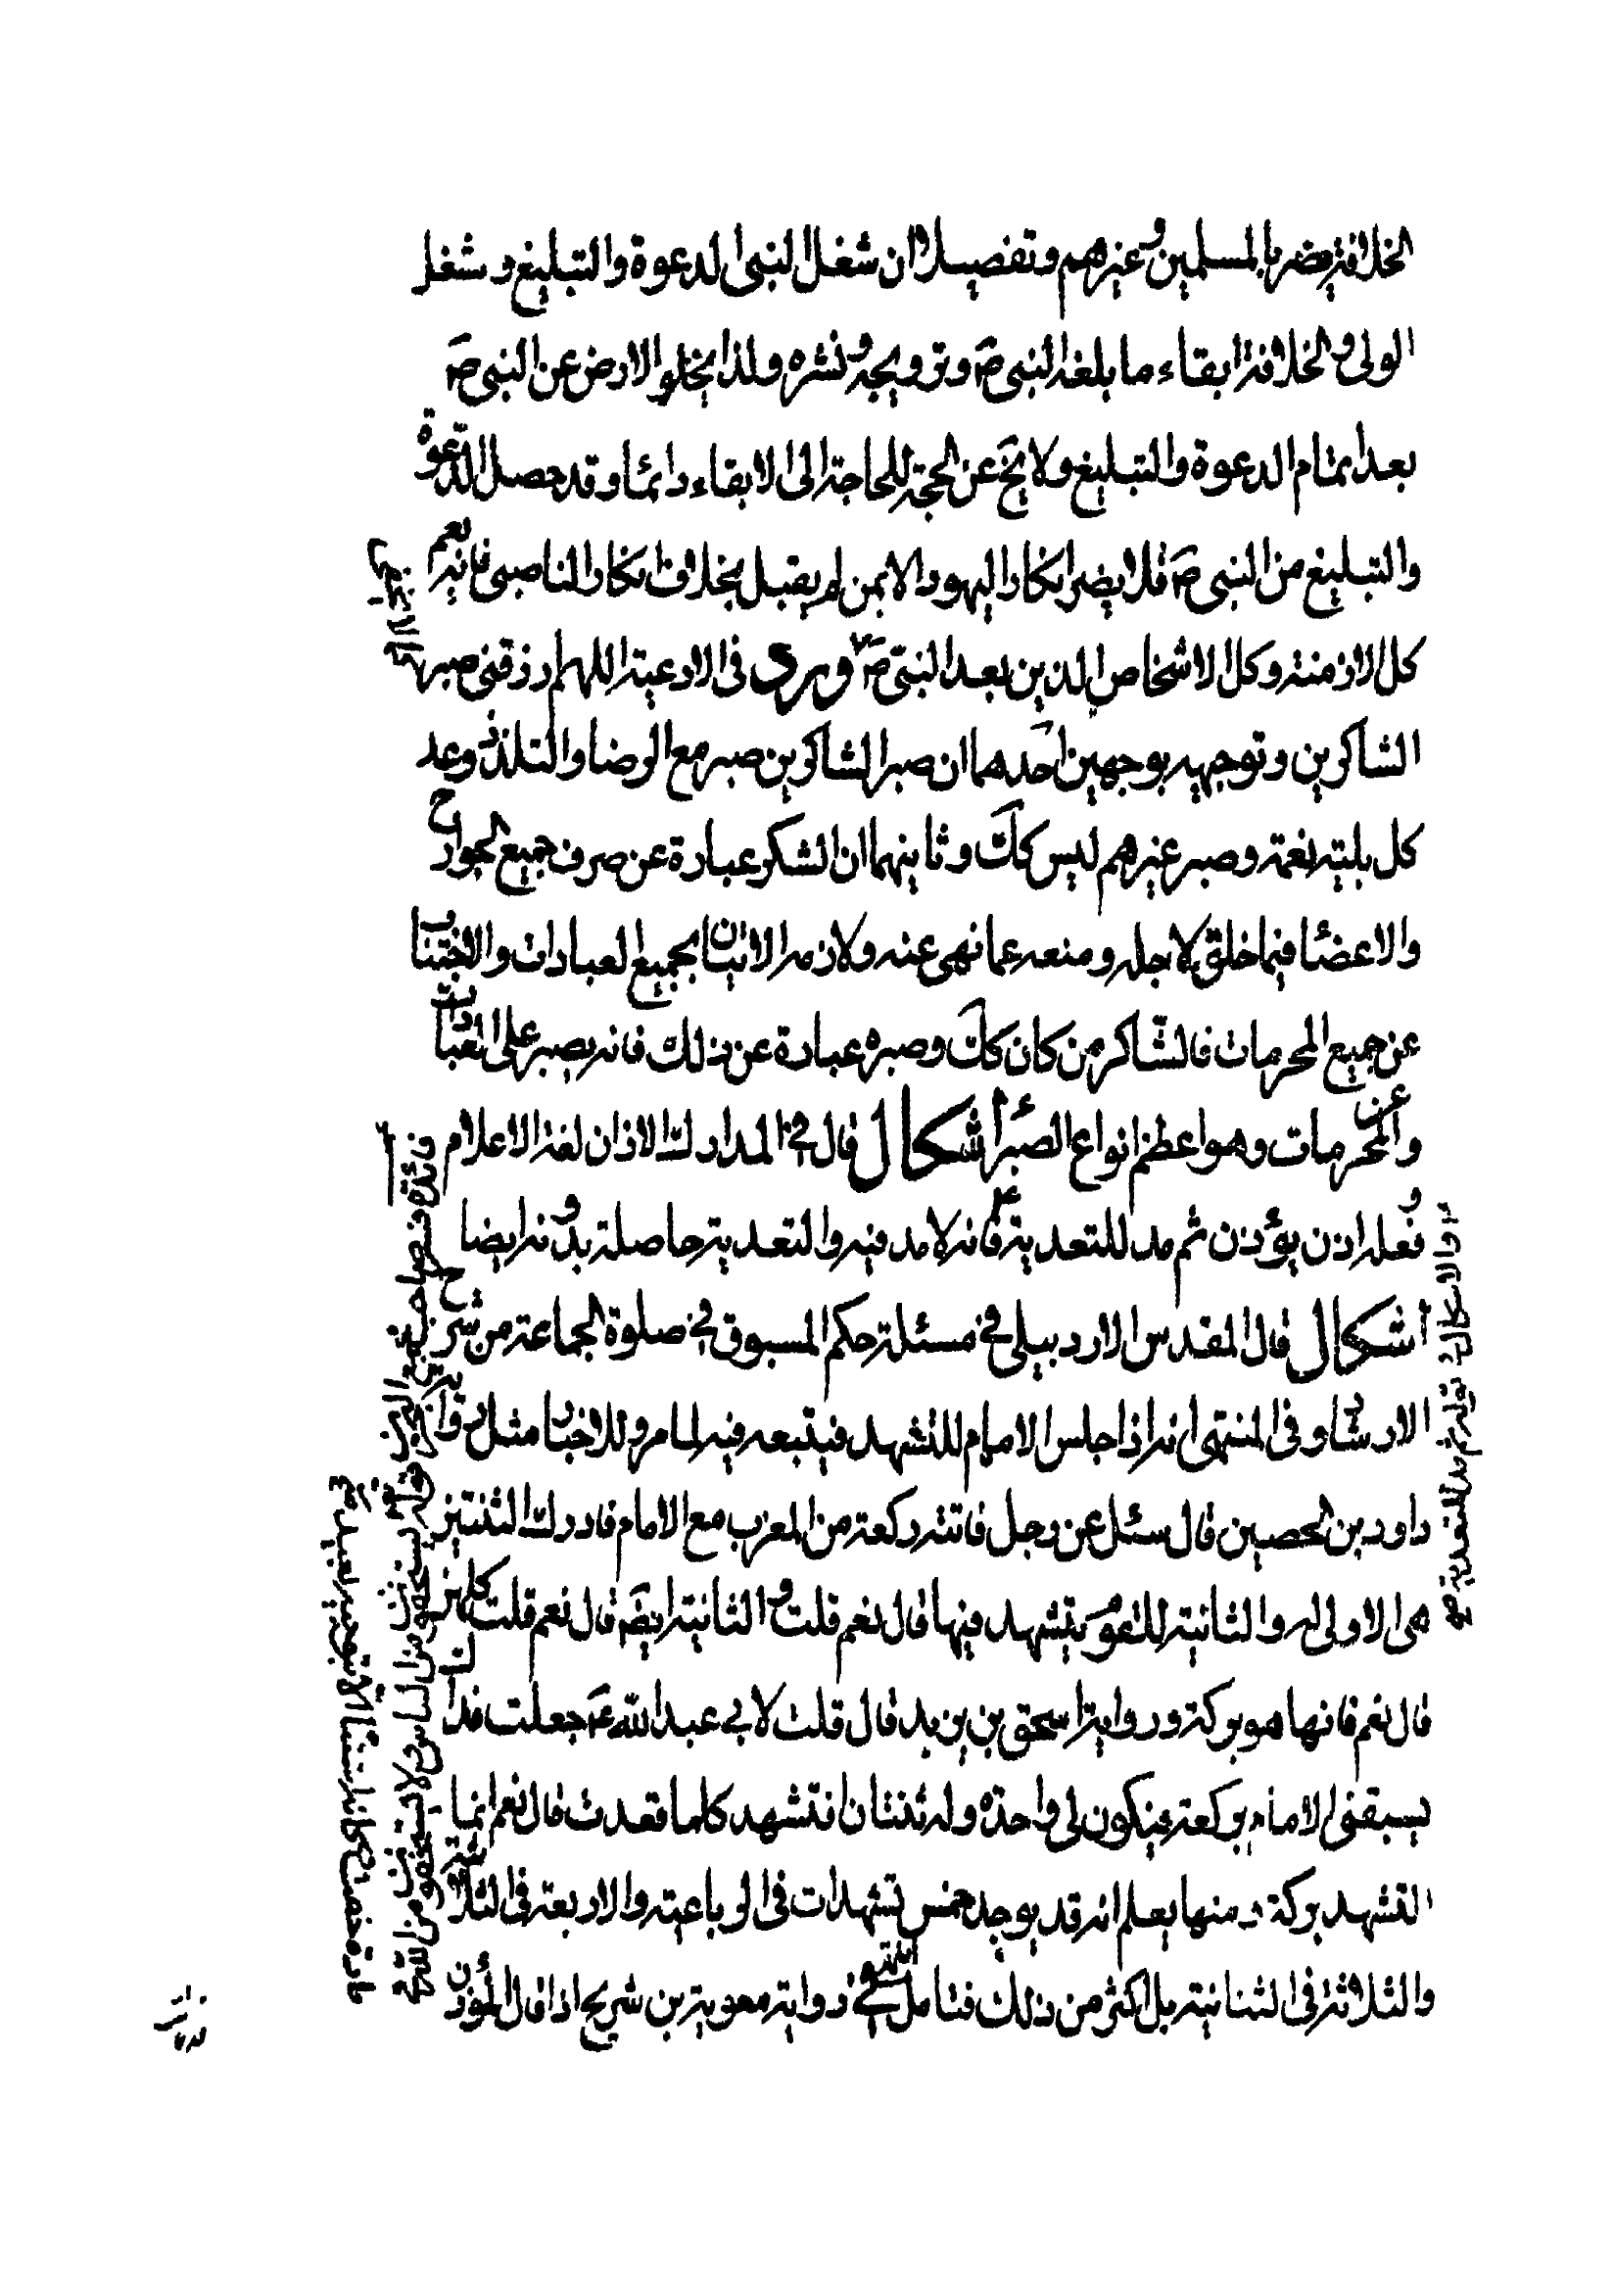 الخلافة مضر بالمسلمين وغيرهم وتفصيلا ان شغل النبى الدعوة والتبليغ وشغل
الولى والخلافة ابقاء ما بلغه النبى ص وترويجه ونشره ولذا يخلو الارض عن النبى ص
بعد اتمام الدعوة والتبليغ ولا يخ عن الحجة للحاجة الى الابقاء دائما وقد حصل الدعوة
والتبليغ من النبى ص فلا يضر انكار اليهود الا بمن لم يقبل بخلاف انكار الناصبى فانه يعم
كل الازمنة وكل الاشخاص الذين بعد النبى ص ورد فى الادعية اللهم ارزقنى صبر
الشاكرين وتوجيهه بوجهين احدهما ان صبر الشاكرين صبر مع الرضا والتلذذ وعد
كل بلية نعمة وصبر غيرهم ليس كك وثانيهما ان الشكر عبارة عن صرف جميع الجوارح
والاعضا فيما خلق لاجله ومنعه عما نهى عنه ولازمه الاتيان بجميع العبادات والاجتناب
عن جميع المحرمات فالشاكر من كان كك وصبره عبارة عن ذلك فانه يصبر على العبادات
وعن المحرمات وهو اعظم انواع الصبر اشكال قال فى المدارك الاذان لغة الاعلام
وفعله اذن يؤذن ثم مد للتعدية فانه لا مد فيه والتعدية حاصلة بدونه ايضا
اشكال قال المقدس الاردبيلى فى مسئلة حكم المسبوق فى صلوة الجماعة من شرح
الارشاد وفى المنتهى انه اذا جلس الامام للتشهد فيتبعه فيه لما مر وللاخبار مثل رواية
داود بن الحصين قال سئل عن رجل فاتته ركعة من المغرب مع الامام فادرك الثنتين
هى الاولى له والثانية للقوم يتشهد فيها قال نعم قلت والثانية ايضا قال نعم قلت كلهن
قال نعم فانها هو بركة ورواية اسحق بن يزيد قال قلت لابى عبد الله ع جعلت فداك
يسبقنى الامام بركعة فيكون لى واحدة وله ثنتان افتشهد كلما قعدت قال نعم انما
التشهد بركة ومنها يعلم انه قد يوجد خمس تشهدات فى الرباعية والاربعة فى الثلاثية
والثلاثة فى الثنائية بل اكثر من ذلك فتامل انتهى فى رواية معوية بن شريح اذا قال المؤذن